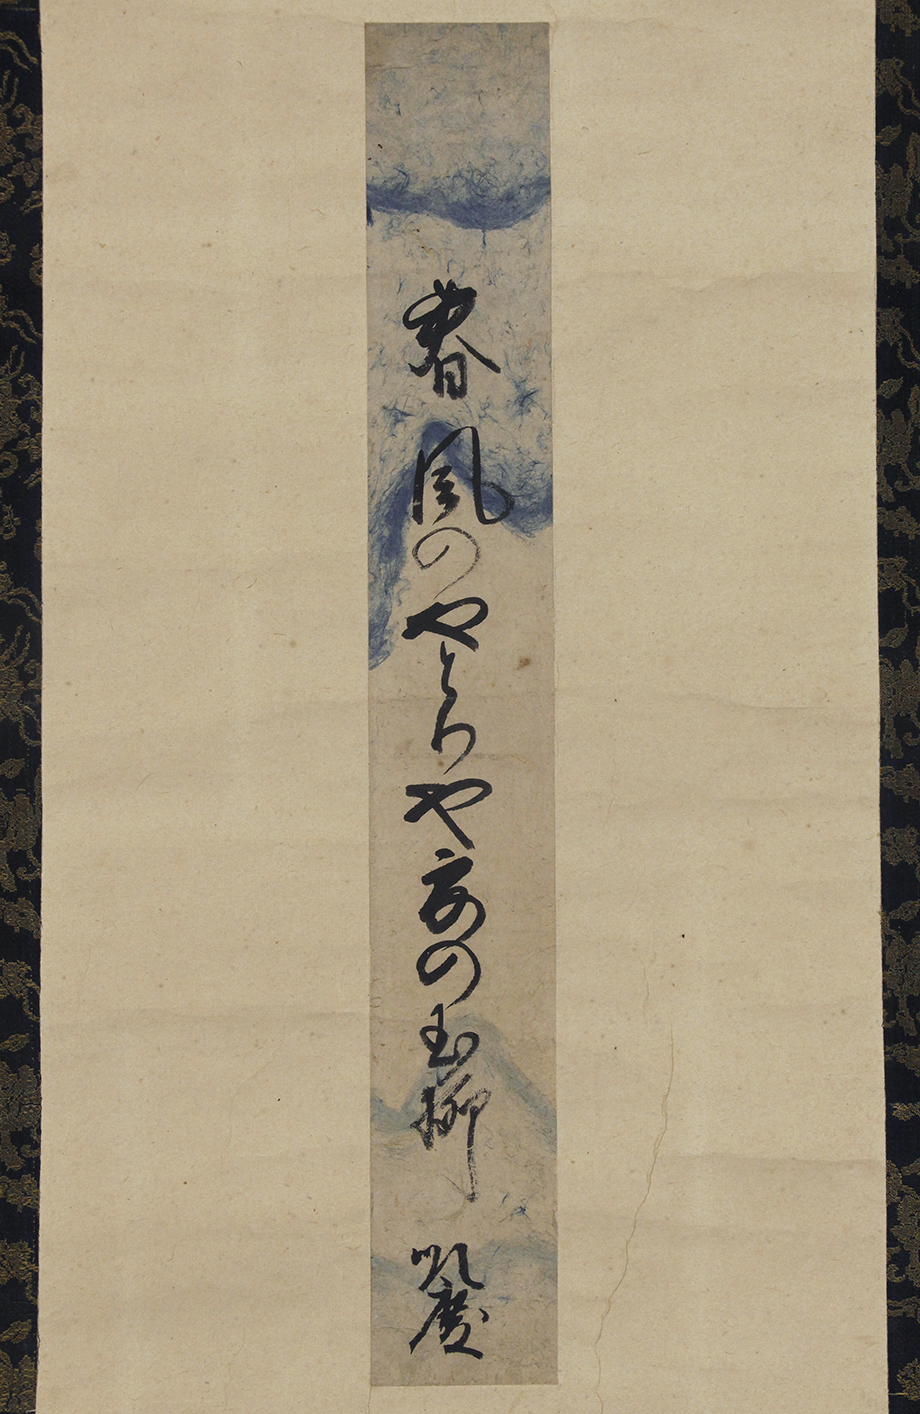 春風のやとりや家の玉柳
慶